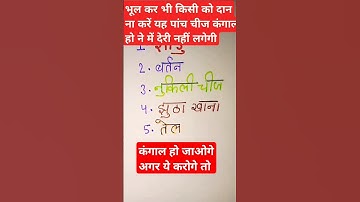 भूल कर भी किसी को दान
ना करें यह पांच चीज कंगाल
हो ने में देरी नहीं लगेगी
1. झाड़ु
2. बर्तन
3. नुकिली चीज
4. झुठा खाना
5. तेल
कंगाल हो जाओगे
अगर ये करोगे तो